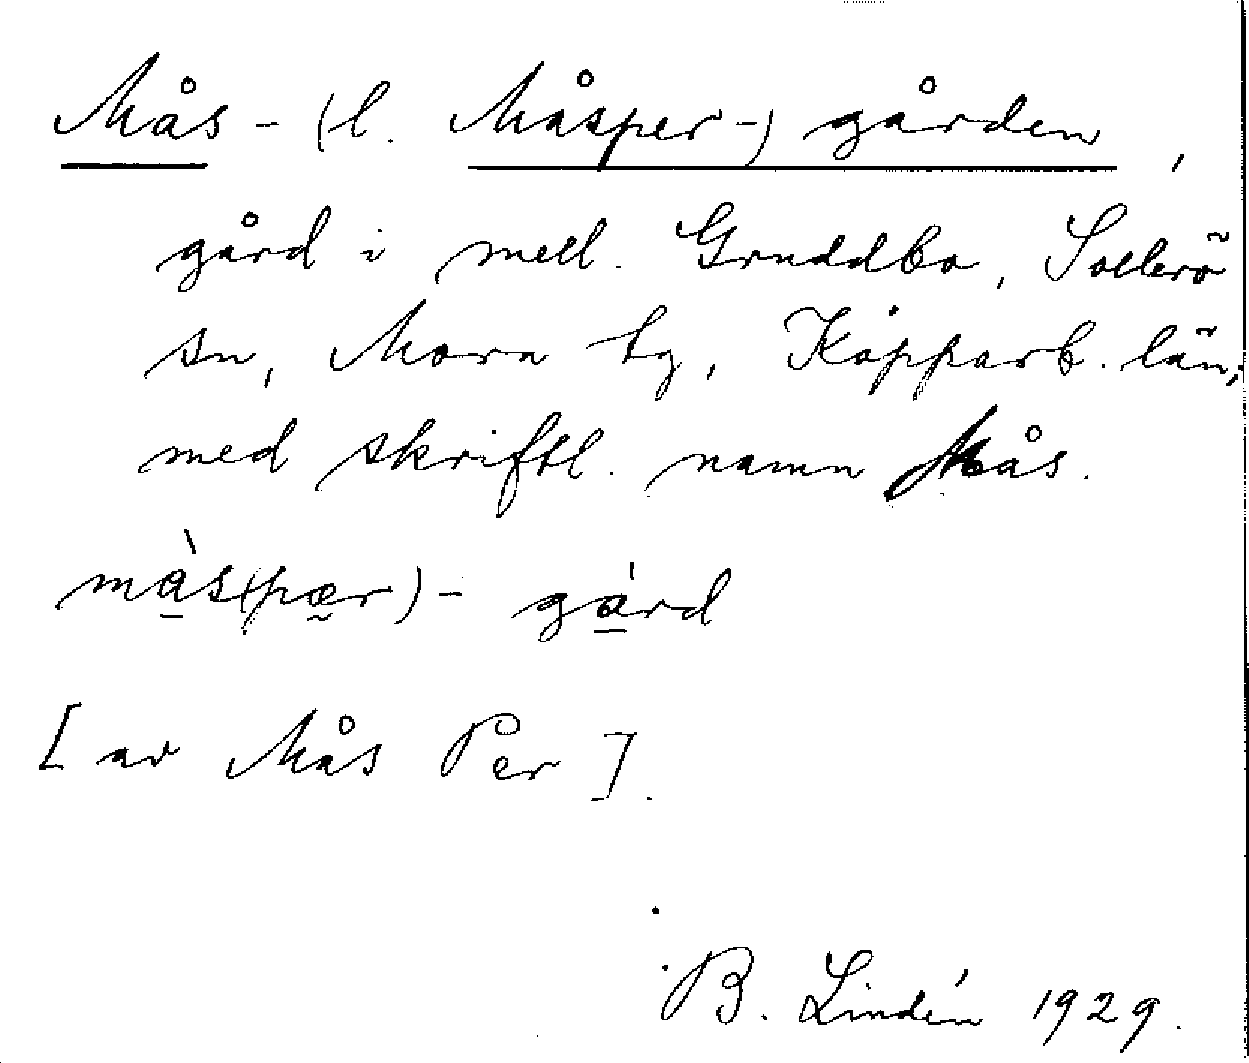 Mås- (l. Måsper-) gården,
gård i mell. Gruddbo, Sollerö
sn, Mora tg, Kopparb. län,
med skriftl. namn Mås.
màs(pær)- gárd
[av Mås Per].
B. Lindén 1929.